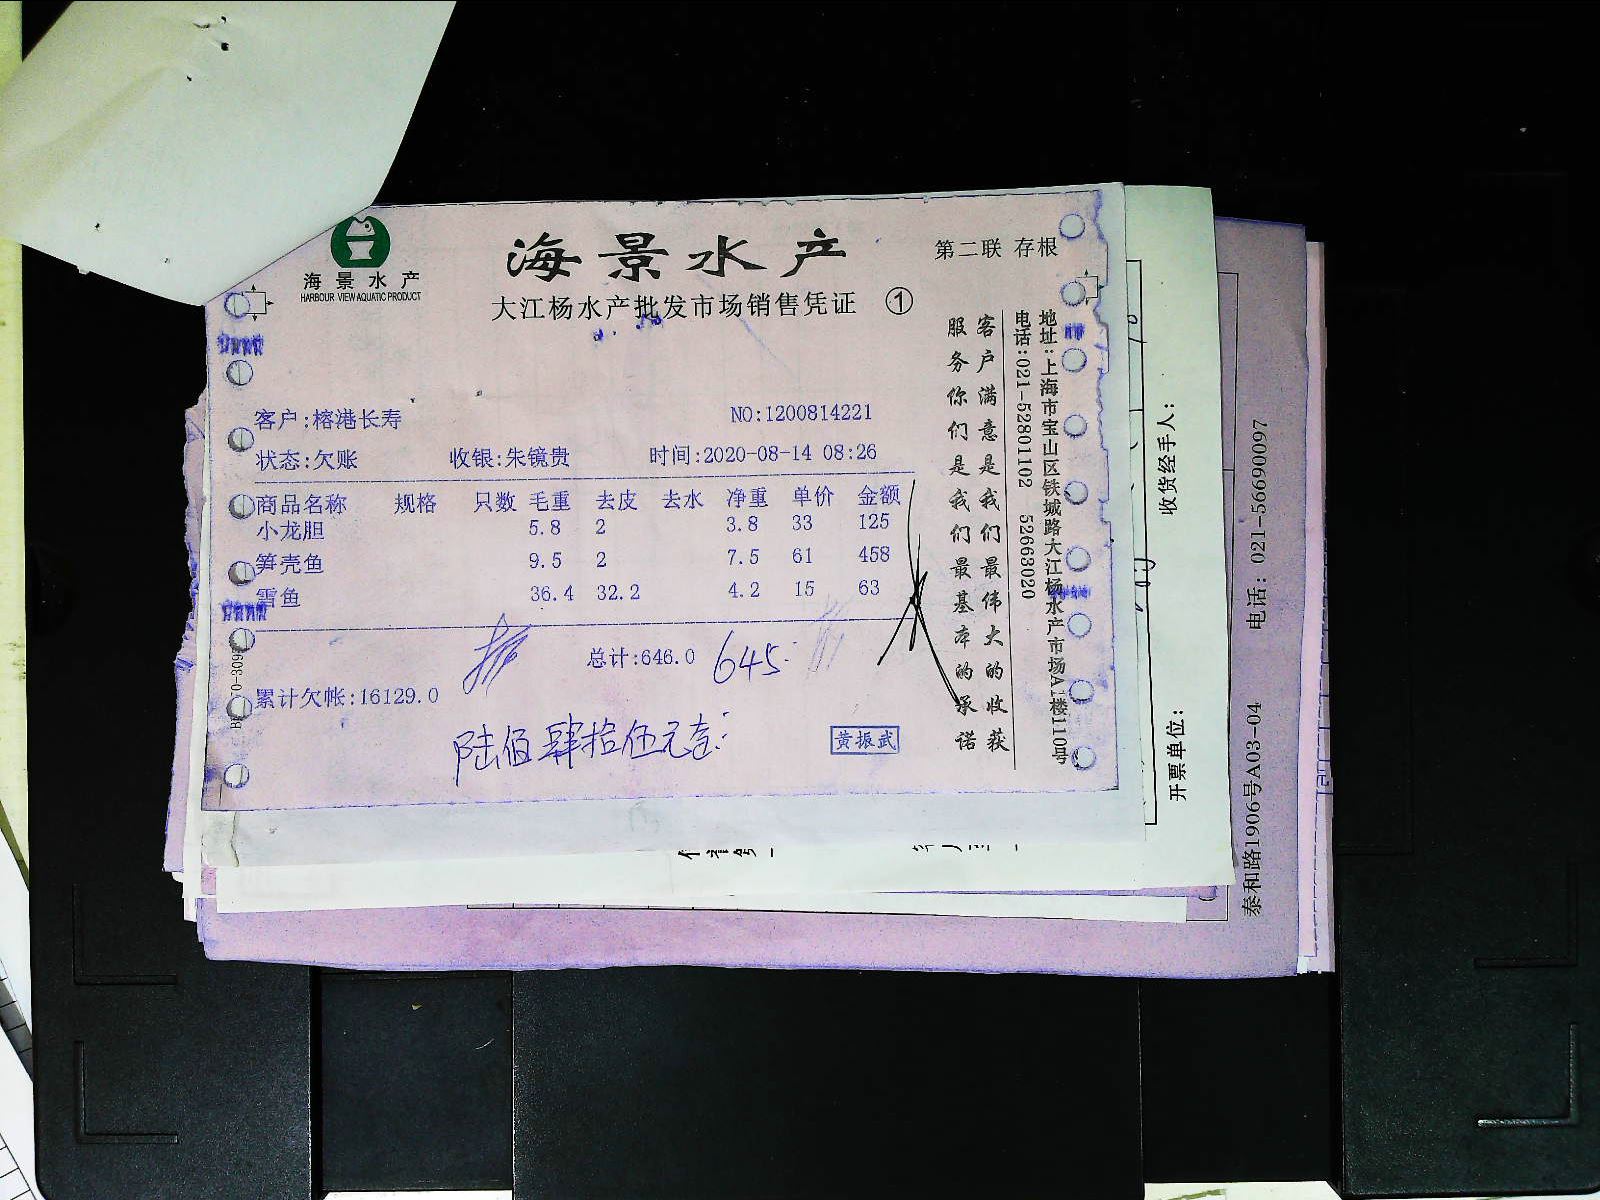 海景水产
HARBOUR VIEW AQUATIC PRODUCT
海景水产
第二联 存根
大江杨水产批发市场销售凭证 ①
客户:榕港长寿 NO:1200814221
状态:欠账 收银:朱镜贵 时间:2020-08-14 08:26
商品名称 规格 只数 毛重 去皮 去水 净重 单价 金额
小龙胆 5.8 2 3.8 33 125
笋壳鱼 9.5 2 7.5 61 458
雪鱼 36.4 32.2 4.2 15 63
总计:646.0 645.
累计欠帐:16129.0
陆佰肆拾伍元
黄振武
客户满意是我们最伟大的收获
服务你们是我们最基本的承诺
地址:上海市宝山区铁城路大江杨水产市场A1楼110号
电话:021-52801102 52663020
收货经手人:
开票单位:
泰和路1906号A03-04 电话: 021-56690097